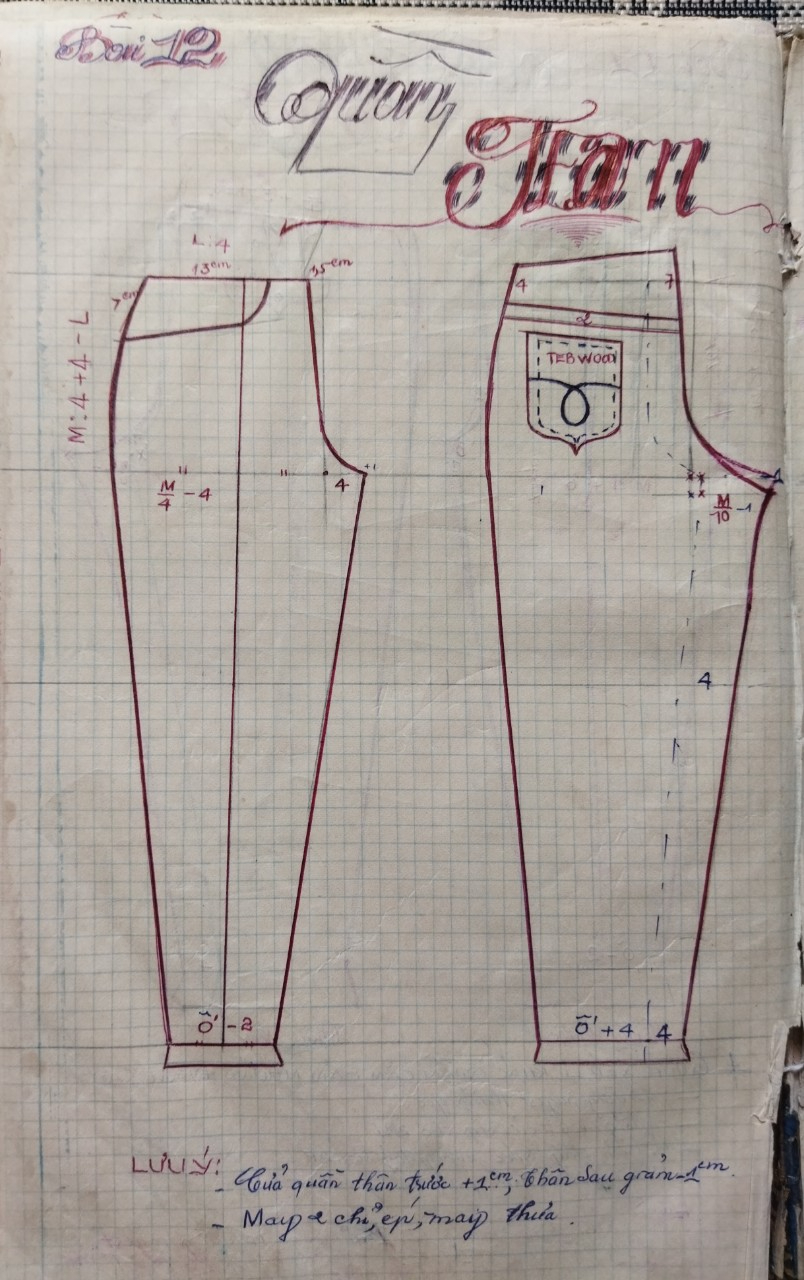 Bài 12
Quần
Jean
L:4
13cm
1,5cm
7cm
M:4+4-L
M/4 - 4
4
+1
Ô' - 2
4
7
2
TEBWOOD
-1
M/10 -1
4
Ô' + 4
4
LƯU Ý:
- Cửa quần thân trước +1cm, thân sau giảm -1cm.
- May 2 chỉ, ép, may thừa.